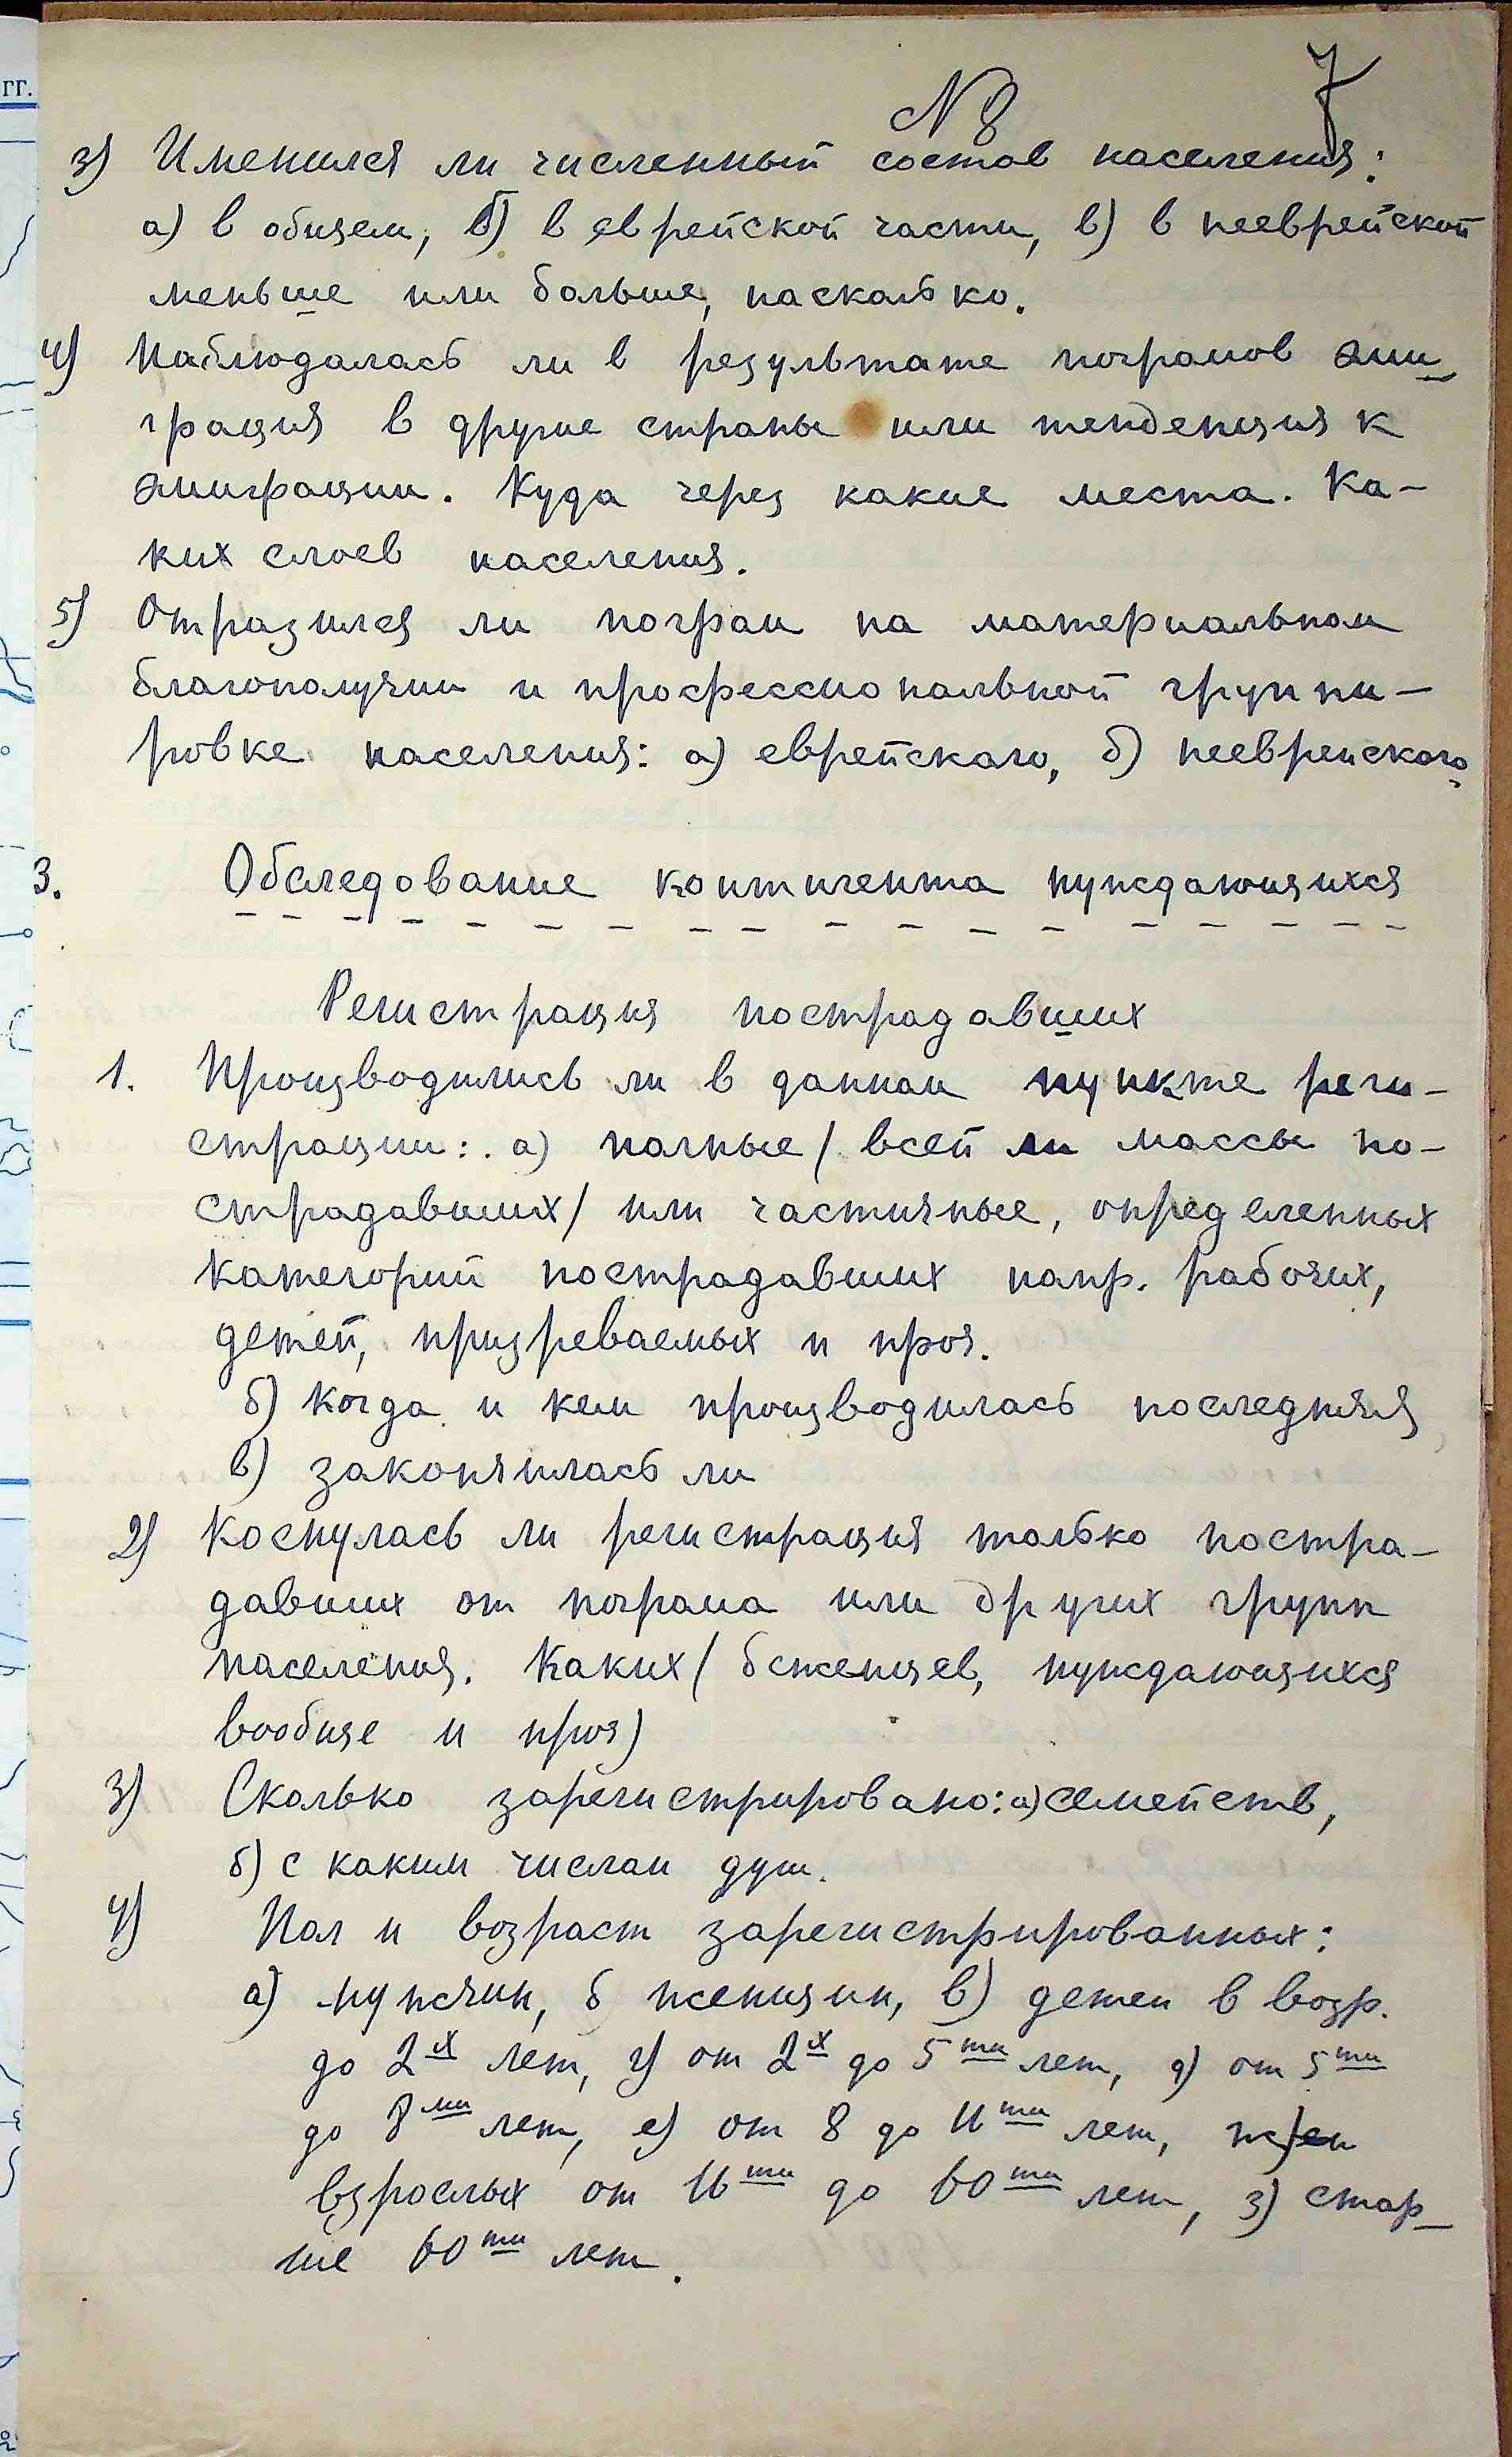 гг.
N 8
7
3) Именился ли численный состав населения:
а) в общем, б) в еврейской части, в) в нееврейской
меньше или больше, насколько.
4) Наблюдалась ли в результате погромов эми
грация в другие страны или тенденция к
эмиграции. Куда через какие места. Ка-
ких слоев населения.
5) Отразился ли погром на материальном
благополучии и профессиональной группи-
ровке населения: а) еврейского, б) нееврейского.
3. Обследование контингента нуждающихся
Регистрация пострадавших
1. Производились ли в данном пункте реги-
страции: а) полные / всей массы по-
страдавших/ или частичные, определенных
категорий пострадавших напр. рабочих,
детей, призреваемых и проч.
б) когда и кем производилась последняя
в) закончилась ли
2) Коснулась ли регистрация только постра-
давших от погрома или других групп
населения. Каких/ беженцев, нуждающихся
вообще и проч)
3) Сколько зарегистрировано: а) семейств,
б) с каким числом душ.
4) Пол и возраст зарегистрированных:
а) мужчин, б женщин, в) детей в возр.
до 2х лет, г) от 2х до 5ти лет, д) от 5ти
до 8ми лет, е) от 8 до 16ти лет, ж)
взрослых от 16ти до 60ти лет, з) стар-
ше 60ти лет.